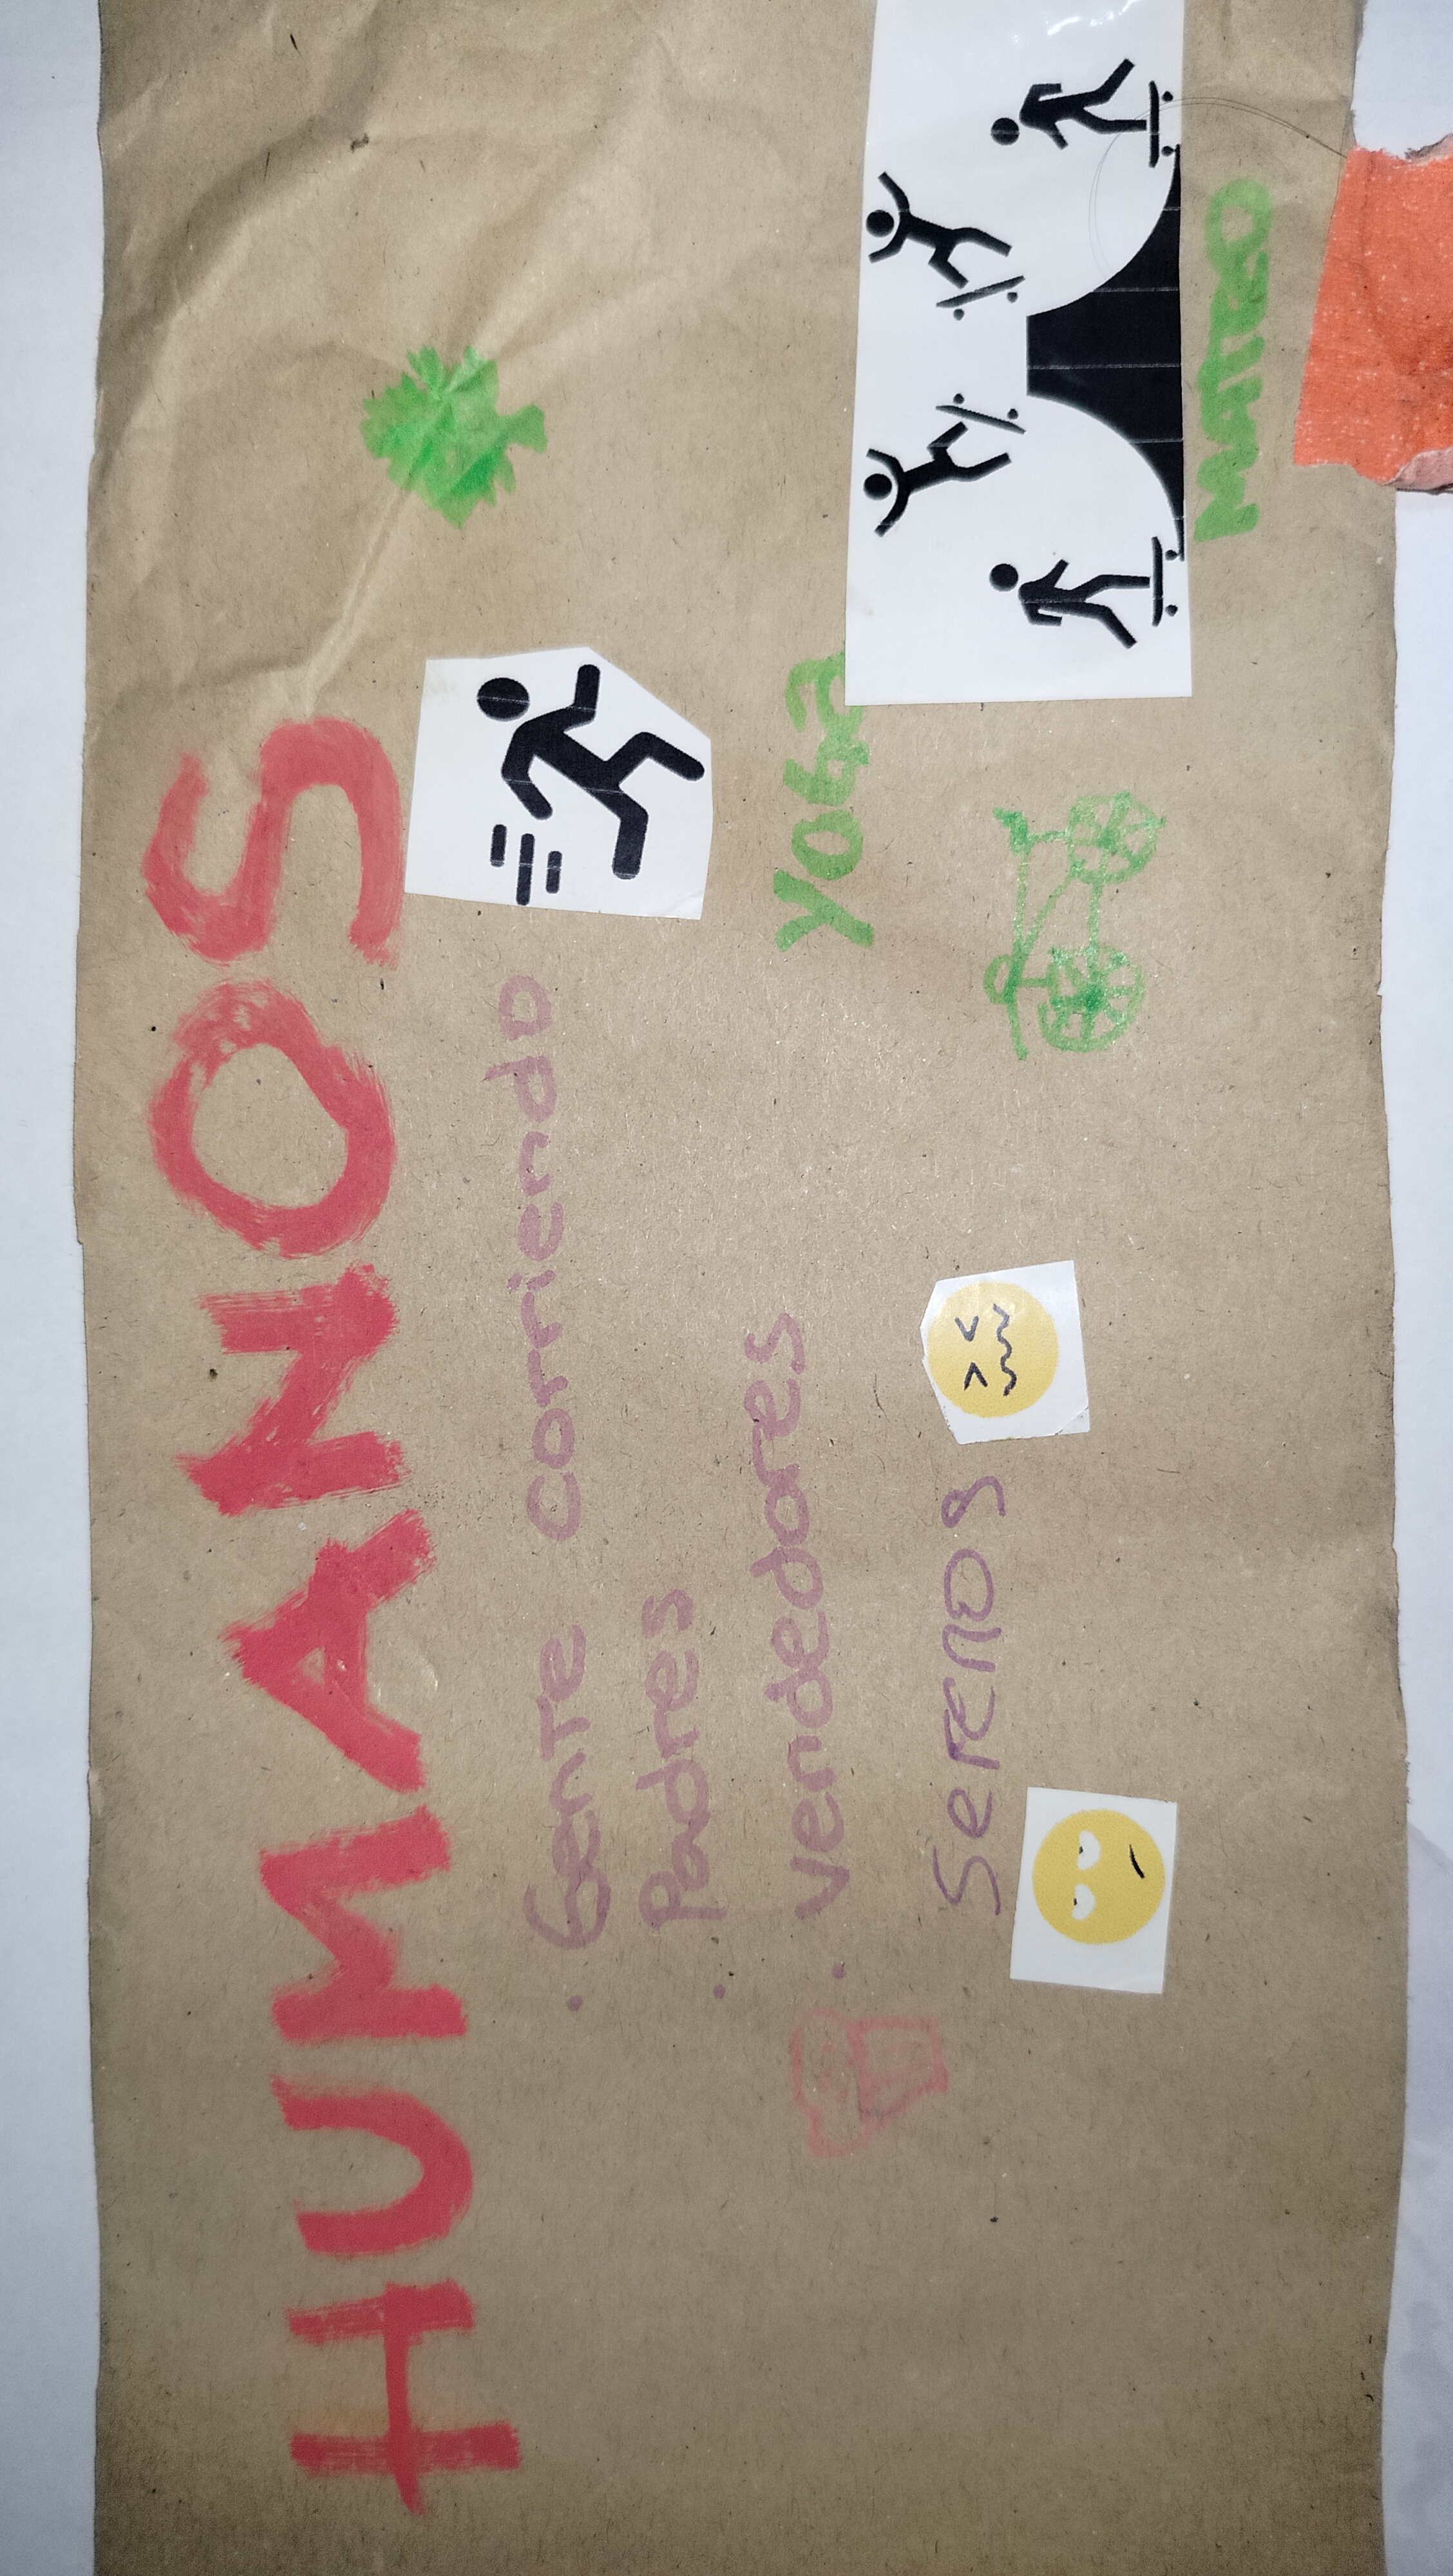 HUMANOS
· Gente corriendo
· Padres
· vendedores
Serenos
YOGa
MATEO